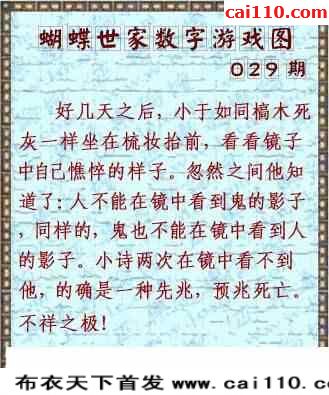 cai110.com
蝴蝶世家数字游戏图
029期
好几天之后，小于如同槁木死
灰一样坐在梳妆抬前，看看镜子
中自己憔悴的样子。忽然之间他知
道了：人不能在镜中看到鬼的影子
，同样的，鬼也不能在镜中看到人
的影子。小诗两次在镜中看不到
他，的确是一种先兆，预兆死亡。
不祥之极！
布衣天下首发 www.cai110.c